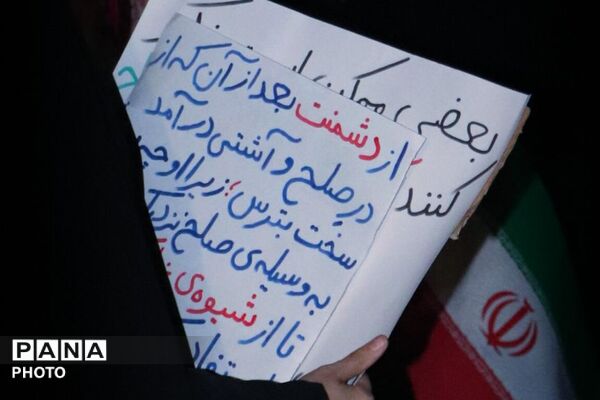 بعضی ممکن است
کنند
از دشمنت بعد از آن که از
در صلح و آشتی درآمد
سخت بترس؛ زیرا او چه
به وسیله‌ی صلح نزدیک
تا از شیوه‌ی
PANA
PHOTO